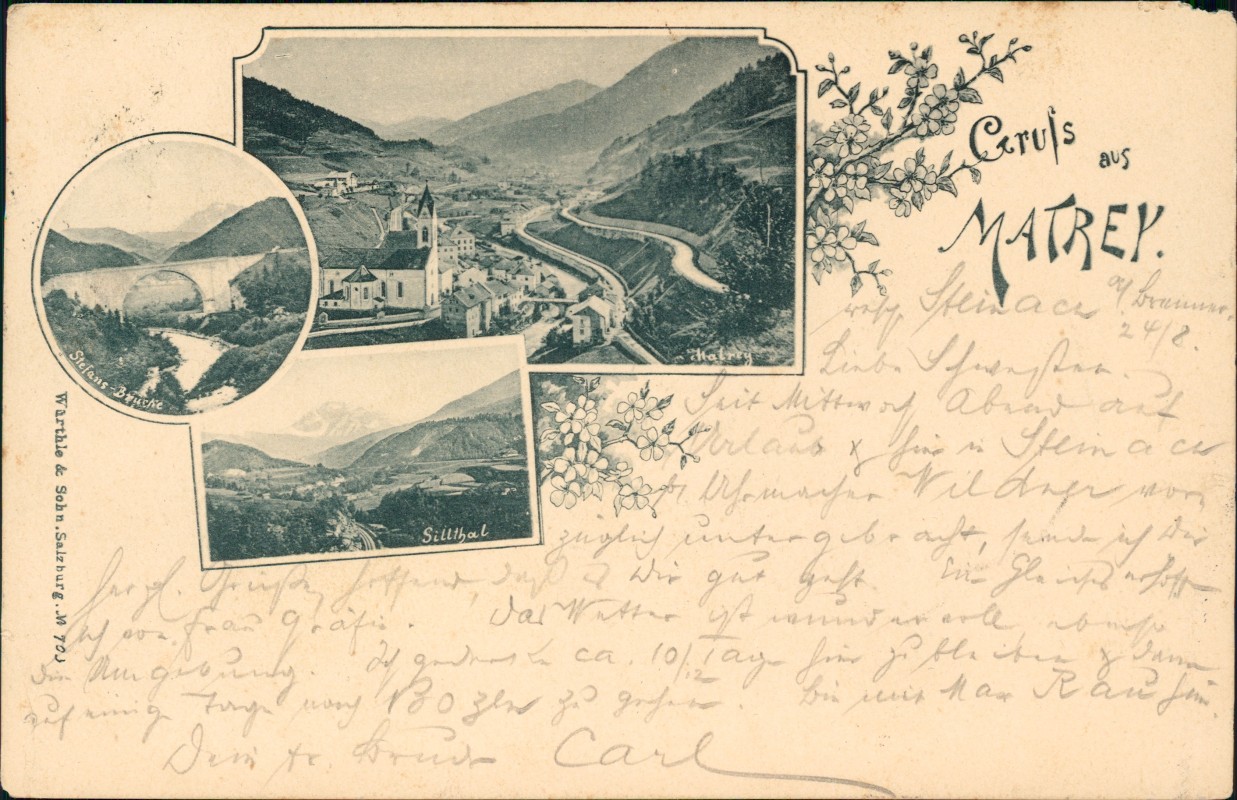 Gruſs
aus
MATREY.
Stefans-Brücke
Matrey
Sillthal
Würthle & Sohn, Salzburg. № 703
Steinach a/ Brenner.
24/8.
Liebe Schwester.
Seit Mittwoch Abend auf
Urlaub & hier in Steinach
Uhrmacher vor
züglich untergebracht, sende ich Dir
herzl. Grüße, hoffend daß es Dir gut geht. Ein Gleiches erhoffe
ich von Frau Gräfin. Das Wetter ist wundervoll, ebenso
die Umgebung. Ich gedenke ca. 10/12 Tage hier zu bleiben & dann
auf einige Tage nach Bozen zu gehen. Bin mit Max Rau hier.
Dein tr. Bruder Carl